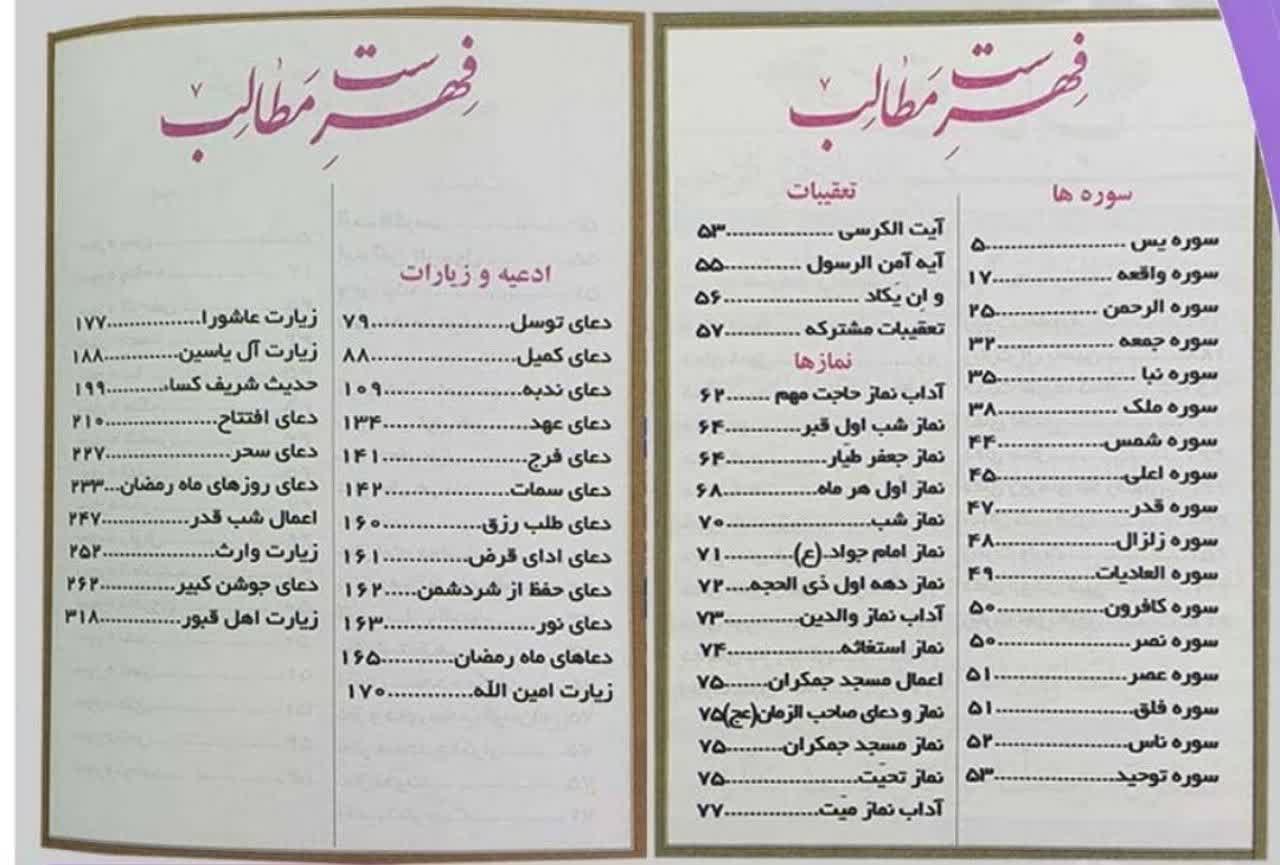 فهرست مطالب ۷
سوره ها
سوره یس ......................۵
سوره واقعه ..................۱۷
سوره الرحمن ................۲۵
سوره جمعه ..................۳۲
سوره نبا ......................۳۵
سوره ملک ....................۳۸
سوره شمس..................۴۴
سوره اعلی...................۴۵
سوره قدر.....................۴۷
سوره زلزال...................۴۸
سوره العادیات...............۴۹
سوره کافرون.................۵۰
سوره نصر.....................۵۰
سوره عصر....................۵۱
سوره فلق.....................۵۱
سوره ناس....................۵۲
سوره توحید..................۵۳
تعقیبات
آیت الکرسی ................۵۳
آیه آمن الرسول ............۵۵
و اِن یَکاد ....................۵۶
تعقیبات مشترکه ............۵۷
نمازها
آداب نماز حاجت مهم .......۶۲
نماز شب اول قبر.............۶۴
نماز جعفر طیّار...............۶۴
نماز اول هر ماه...............۶۸
نماز شب......................۷۰
نماز امام جواد.(ع)...........۷۱
نماز دهه اول ذی الحجه....۷۲
آداب نماز والدین.............۷۳
نماز استغاثه..................۷۴
اعمال مسجد جمکران.......۷۵
نماز و دعای صاحب الزمان(عج)۷۵
نماز مسجد جمکران.........۷۵
نماز تحیّت....................۷۵
آداب نماز میّت...............۷۷
فهرست مطالب ۷
ادعیه و زیارات
دعای توسل.....................۷۹
دعای کمیل.....................۸۸
دعای ندبه......................۱۰۹
دعای عهد......................۱۳۴
دعای فرج.......................۱۴۱
دعای سمات...................۱۴۲
دعای طلب رزق...............۱۶۰
دعای ادای قرض..............۱۶۱
دعای حفظ از شردشمن.....۱۶۲
دعای نور........................۱۶۳
دعاهای ماه رمضان...........۱۶۵
زیارت امین الله................۱۷۰
زیارت عاشورا................۱۷۷
زیارت آل یاسین.............۱۸۸
حدیث شریف کساء.........۱۹۹
دعای افتتاح..................۲۱۰
دعای سحر...................۲۲۷
دعای روزهای ماه رمضان...۲۳۳
اعمال شب قدر..............۲۴۷
زیارت وارث..................۲۵۲
دعای جوشن کبیر...........۲۶۲
زیارت اهل قبور.............۳۱۸